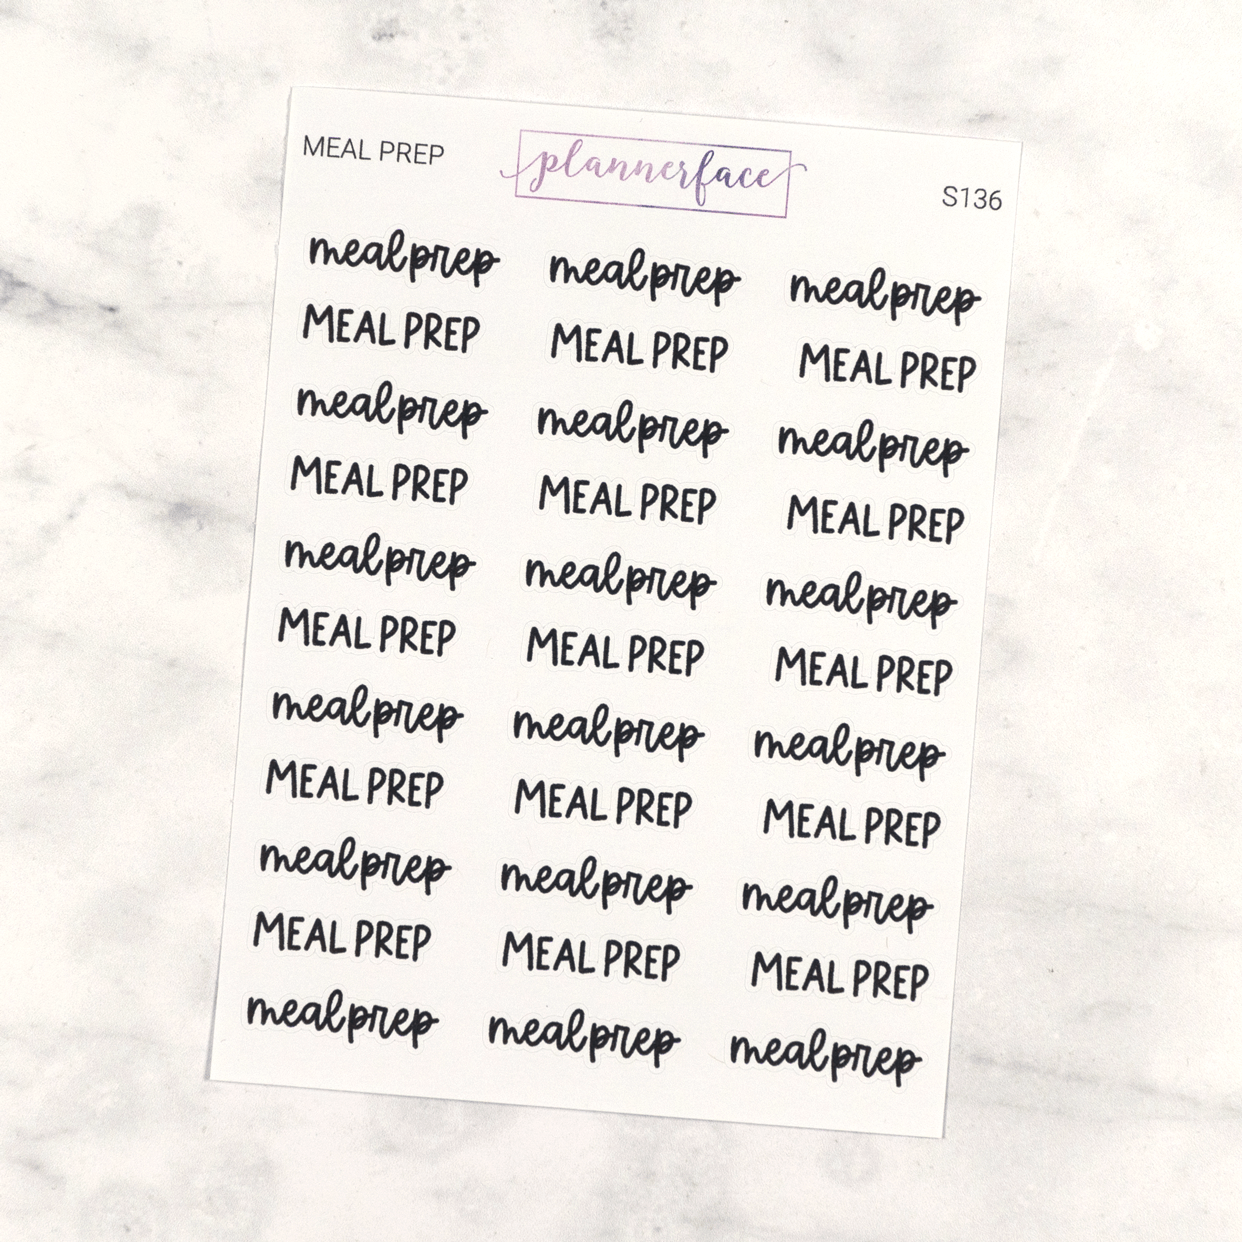 MEAL PREP plannerface S136
meal prep meal prep meal prep
MEAL PREP MEAL PREP MEAL PREP
meal prep meal prep meal prep
MEAL PREP MEAL PREP MEAL PREP
meal prep meal prep meal prep
MEAL PREP MEAL PREP MEAL PREP
meal prep meal prep meal prep
MEAL PREP MEAL PREP MEAL PREP
meal prep meal prep meal prep
MEAL PREP MEAL PREP MEAL PREP
meal prep meal prep meal prep